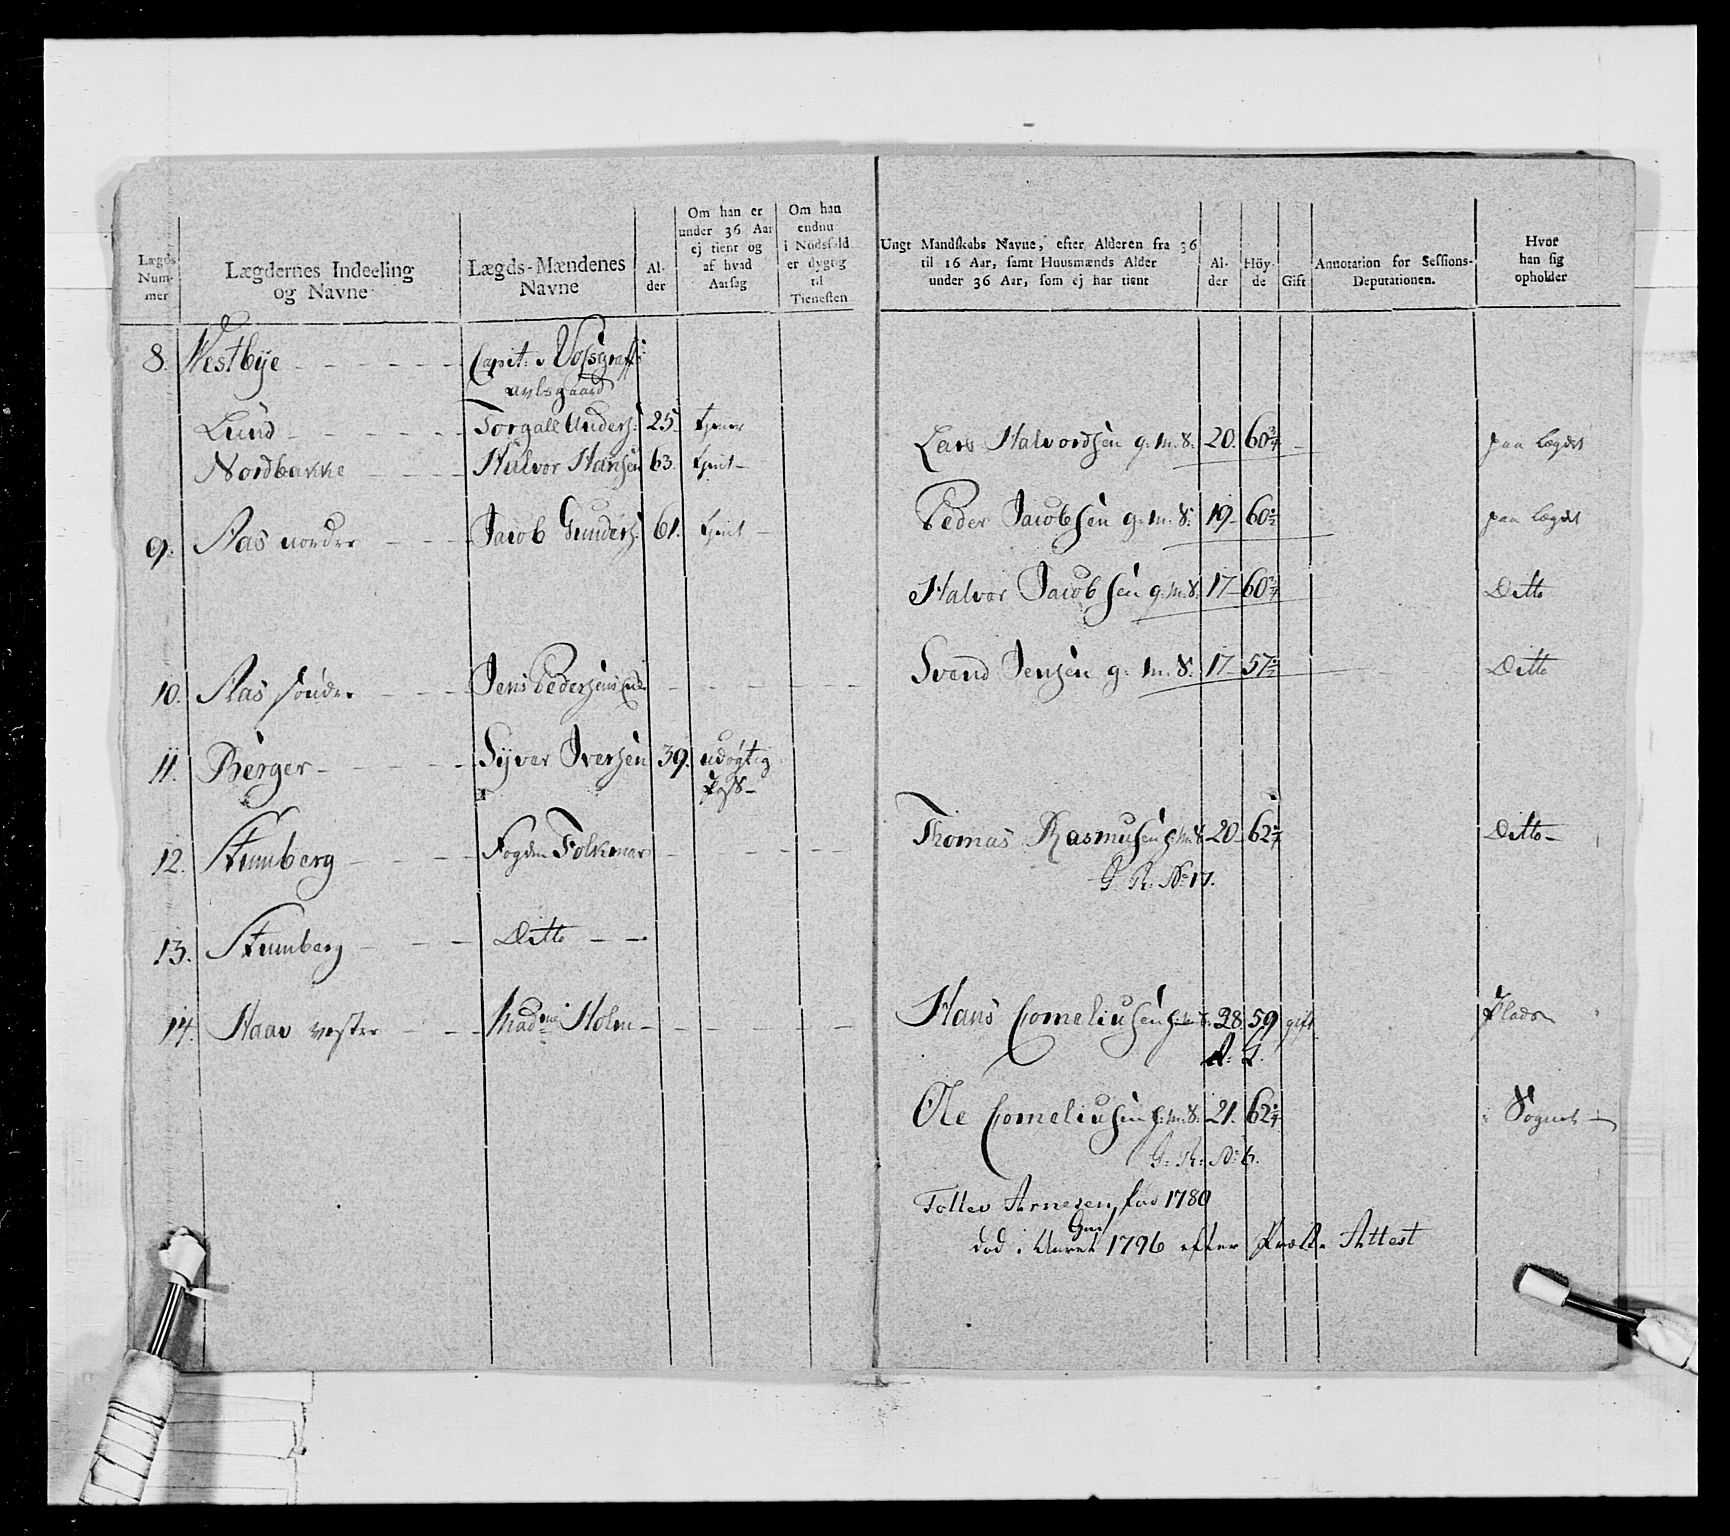 Lægds Num- mer
Lægdernes Indeeling og Navne
Lægds-Mændenes Navne
Al- der
Om han er under 36 Aar ej tient og af hvad Aarsag
Om han endnu i Nödsfald er dygtig til Tienesten
Ungt Mandskabs Navne, efter Alderen fra 36 til 16 Aar, samt Huusmænds Alder under 36 Aar, som ej har tient
Al- der
Höy- de
Gift
Annotation for Sessions- Deputationen.
Hvor han sig opholder
8. Westbye Capit: v
avlsgaard
Lund Torgall Anders: 25
Nordbakke Halvor Hansen 63. tjent
Lars Halvordsen g. m. S. 20. 60 3/4 paa Lægdet
9. Aas nordre Jacob Gunders: 61. tjent
Peder Jacobsen g. m. S. 19 60 1/2 paa Lægdet
Halvor Jacobsen g. m. S. 17 60 3/4 Ditto
10. Aas söndre Jens Pedersens
Svend Jensen g. m. S. 17 57 Ditto
11. Berger Syver Iversen 39. udøgtig
Pass
12. Stumberg Fogden Folkmar
Thomas Rasmusen g. m. S. 20 62 Ditto
G. R. No 17.
13. Stumberg Ditto
14. Haav vester Madme Holm
Hans Corneliusen 28. 59 gift Plads
d: L.
Ole Corneliusen g. m. S. 21. 62 i Sognet
G: R: No 6.
Tollev Arnesen, fød 1780
død i Aaret 1796 efter Attest